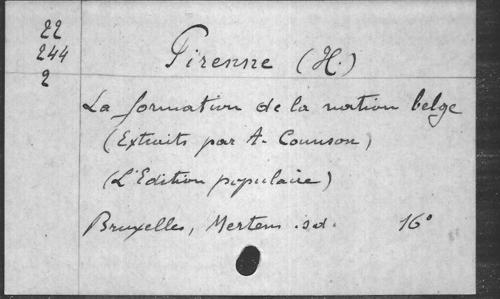 22
244
2
Pirenne (H.)
La formation de la nation belge
(Extraits par A. Counson)
(L'Edition populaire)
Bruxelles, Mertens. sd. 16°